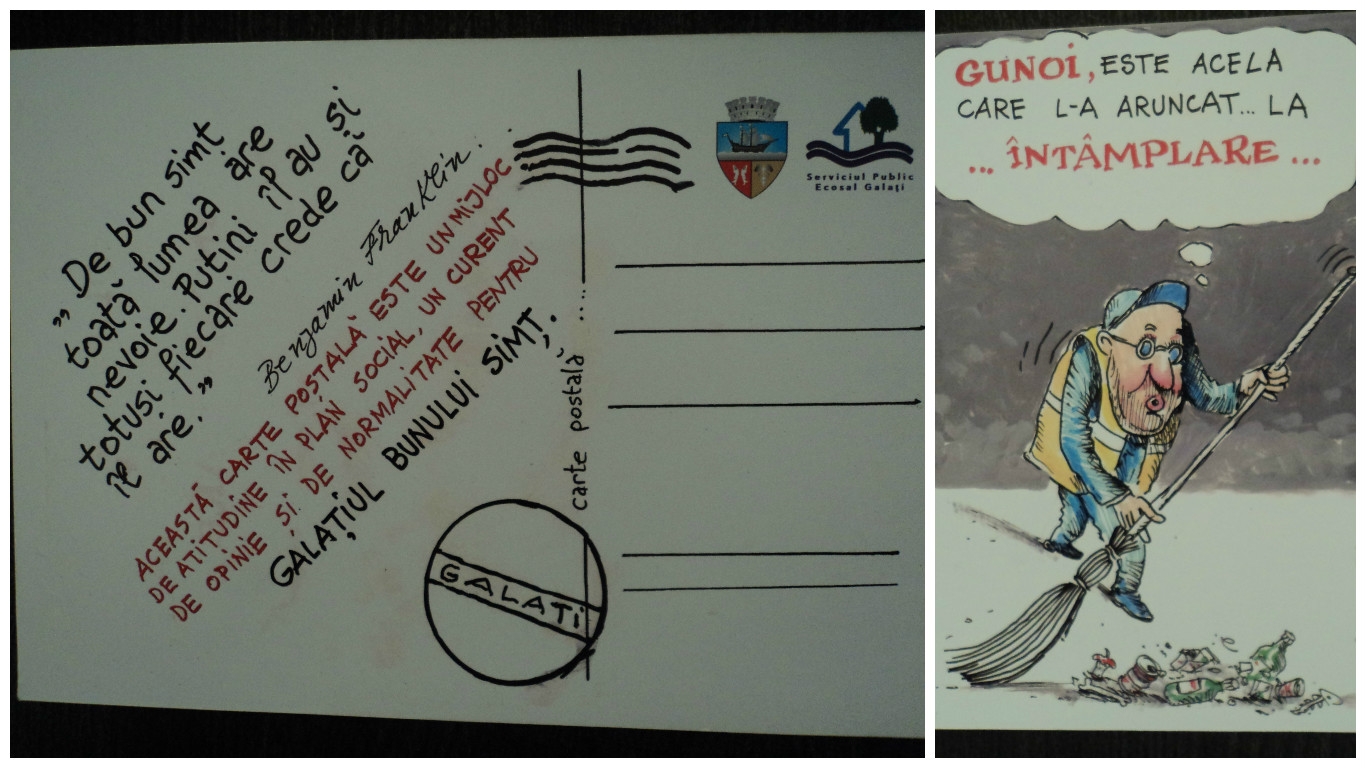 „De bun simt
toată lumea are
nevoie. Putini îl au si
totusi fiecare crede că
îl are.”
Benjamin Franklin.
ACEASTĂ CARTE POȘTALĂ ESTE UN MIJLOC
DE ATITUDINE ÎN PLAN SOCIAL, UN CURENT
DE OPINIE ȘI DE NORMALITATE PENTRU
GALAȚIUL BUNULUI SIMȚ.
GALATI
carte postală
Serviciul Public
Ecosal Galați
GUNOI, ESTE ACELA
CARE L-A ARUNCAT... LA
... ÎNTÂMPLARE ...